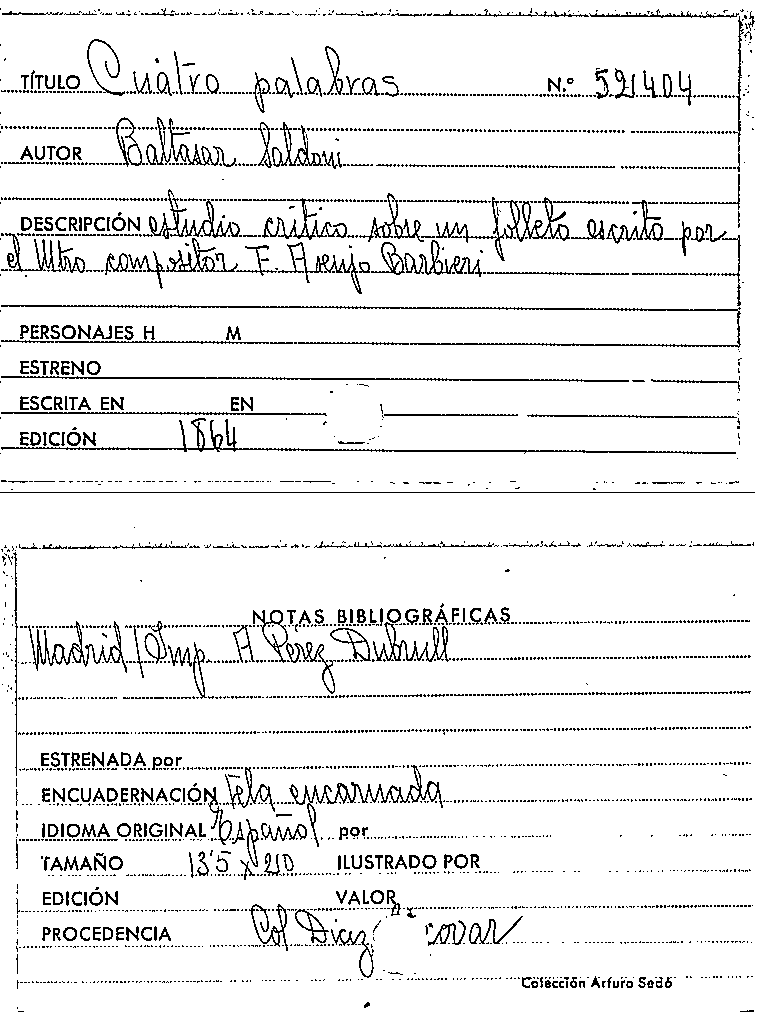 TÍTULO Cuatro palabras N.º 521404
AUTOR Baltasar Saldoni
DESCRIPCIÓN estudio crítico sobre un folleto escrito por
el Mtro compositor F. Asenjo Barbieri
PERSONAJES H M
ESTRENO
ESCRITA EN EN
EDICIÓN 1864
NOTAS BIBLIOGRÁFICAS
Madrid / Imp A Pérez Dubrull
ESTRENADA por
ENCUADERNACIÓN Tela encarnada
IDIOMA ORIGINAL Español por
TAMAÑO 13'5 x 210 ILUSTRADO POR
EDICIÓN VALOR
PROCEDENCIA Col Diaz
Colección Arturo Sedó